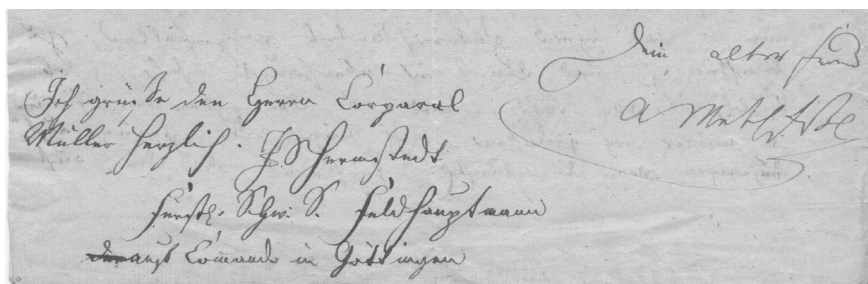 Dein alter Freund
Ich grüße den Herrn Corporal
Müller herzlich. Hermstedt
Fürstl. Schw. S. Feldhauptmann
auf Commando in Göttingen